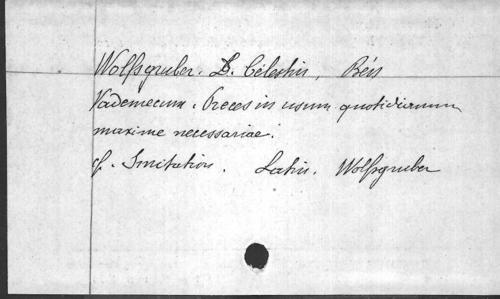 Wolfsgruber. D. Célestin, Bén
Vademecum. Preces in usum quotidianum
maxime necessariae.
cf. Imitation. Latin. Wolfsgruber